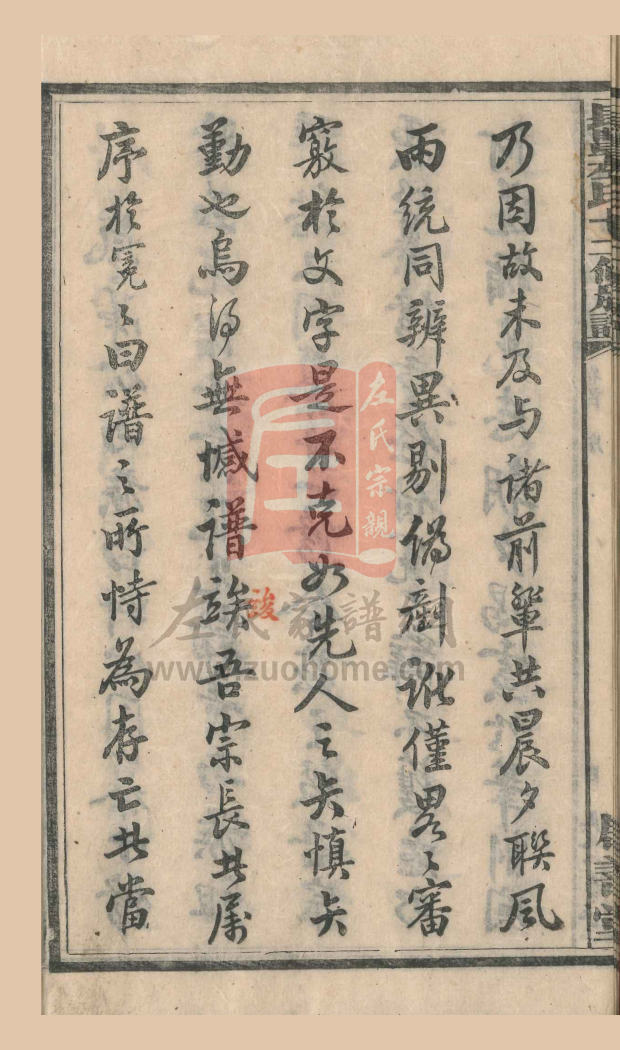 乃因故未及与诸前輩共晨夕聯風
雨統同辨異剔偽訛僅畧〻審
竅於文字是不克如先人之矢慎矢
勤也烏得無憾譜竣吾宗長共属
序於冕〻曰譜之所恃為存亡共當
左氏宗親
左氏家譜網
www.zuohome.com